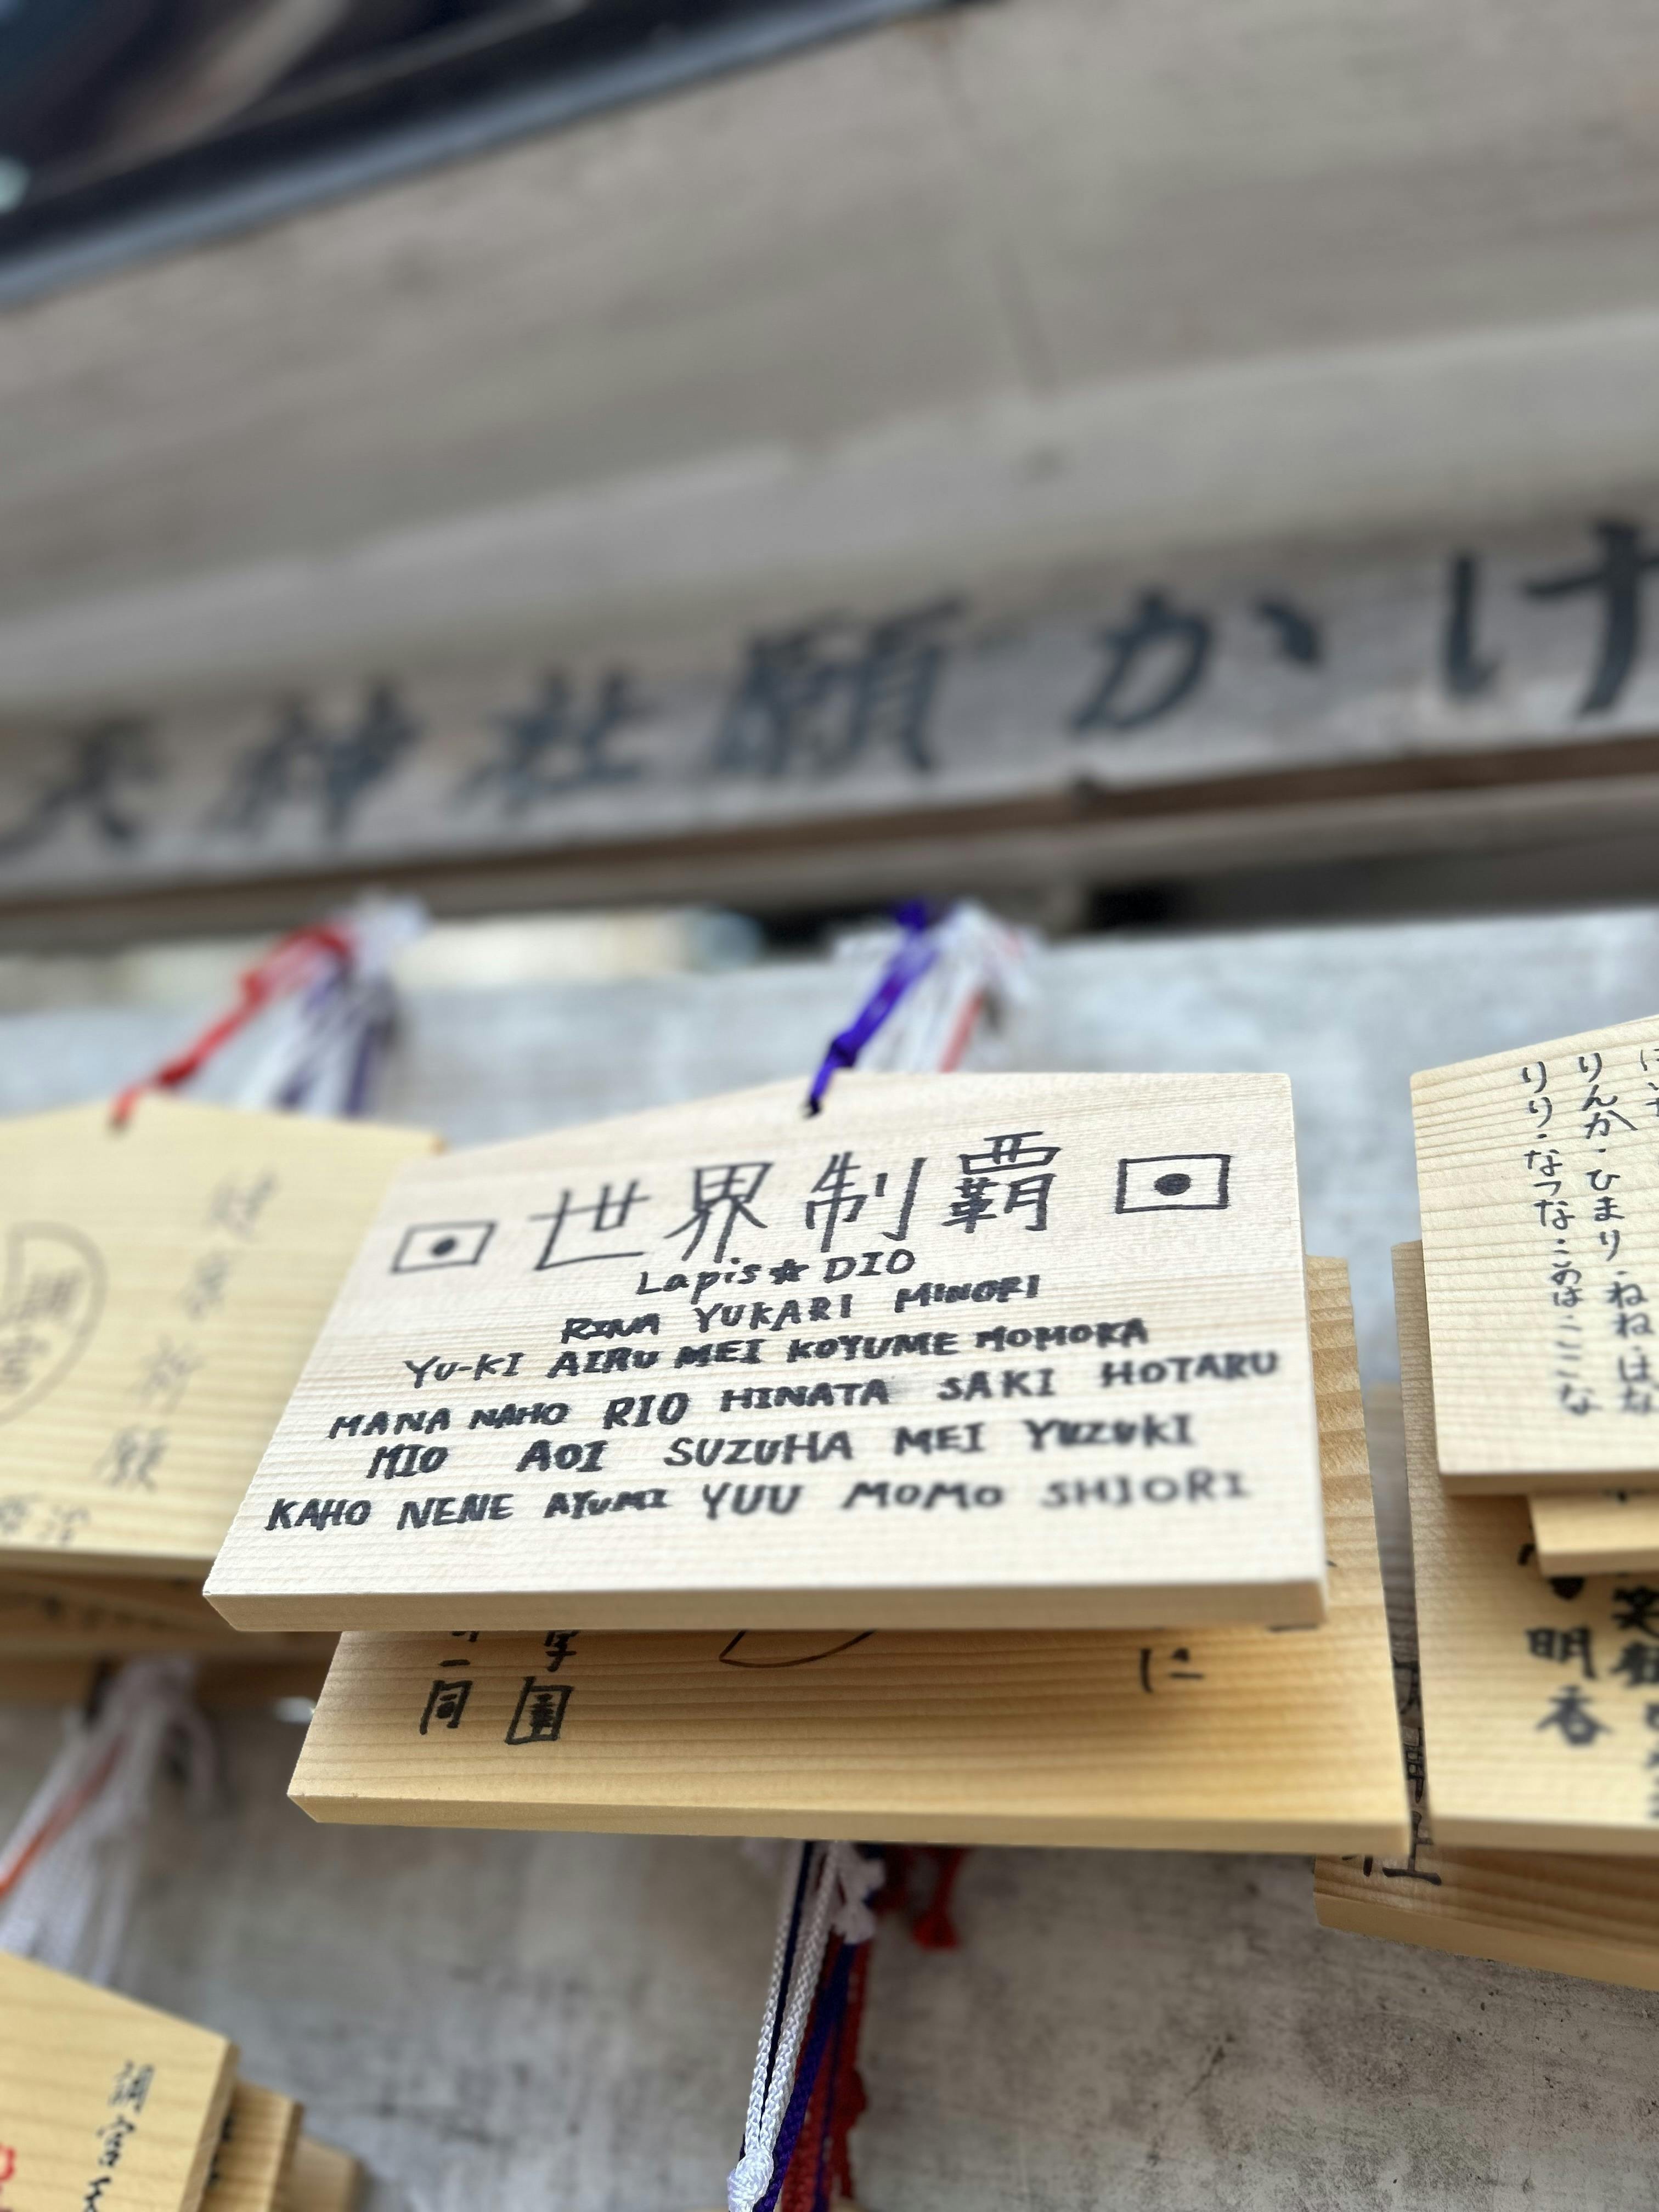 天神社願かけ
世界制覇
Lapis☆DIO
RINA YUKARI MINORI
YU-KI AIRU MEI KOYUME MOMOKA
MANA NAHO RIO HINATA SAKI HOTARU
MIO AOI SUZUHA MEI YUZUKI
KAHO NENE AYUMI YUU MOMO SHIORI
りんか・ひまり・ねね・はな
りり・なつな・このは・ここな
に
園
一同
明香